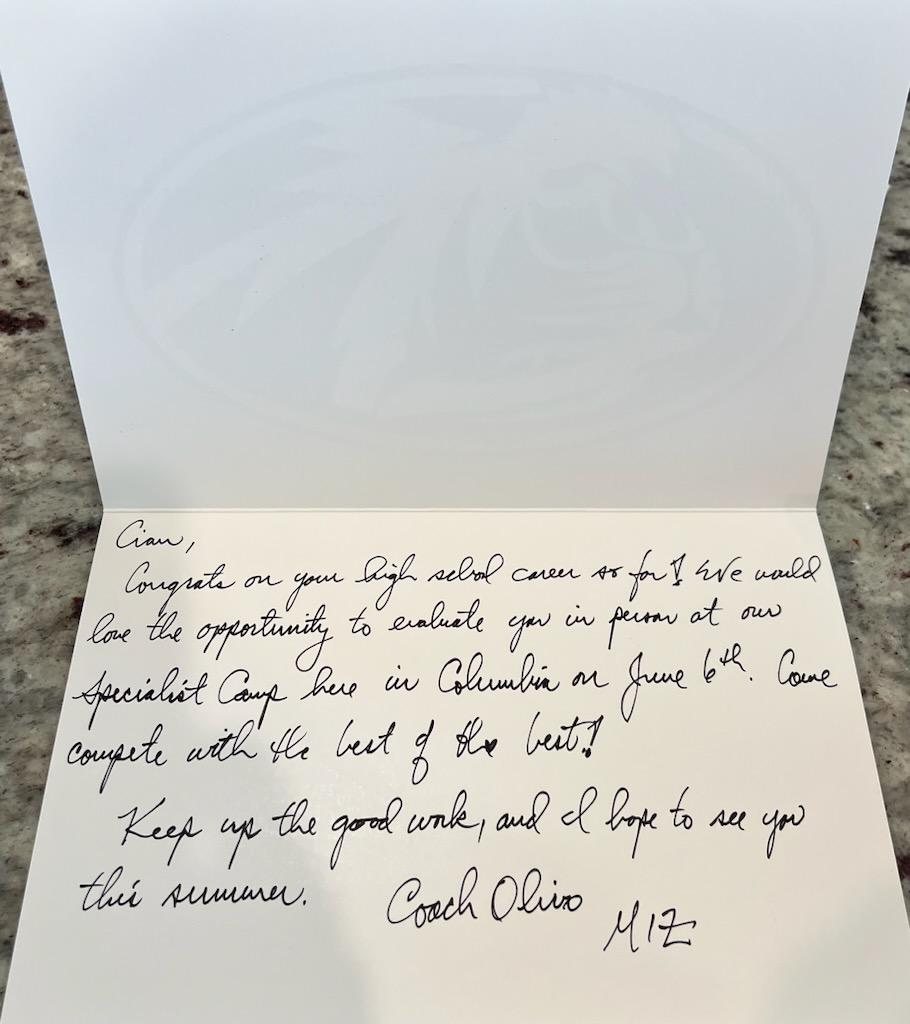 Cian,
Congrats on your high school career so far! We would
love the opportunity to evaluate you in person at our
Specialist Camp here in Columbia on June 6th. Come
compete with the best of the best!
Keep up the good work, and I hope to see you
this summer. Coach Olivo
MIZ